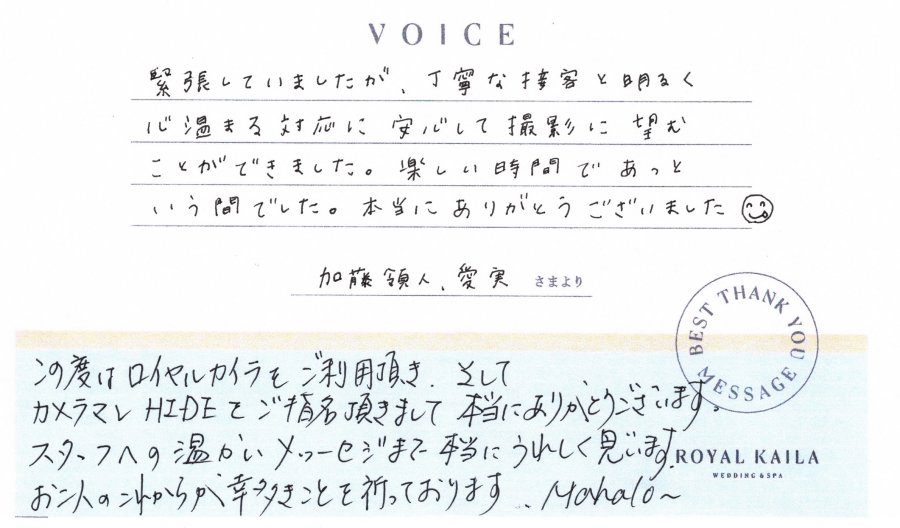 VOICE
緊張していましたが、丁寧な接客と明るく
心温まる対応に安心して撮影に望む
ことができました。楽しい時間であっと
いう間でした。本当にありがとうございました
加藤領人、愛実 さまより
BEST THANK YOU MESSAGE
この度はロイヤルカイラをご利用頂き、そして
カメラマン HIDEをご指名頂きまして 本当にありがとうございます。
スタッフへの温かいメッセージまで本当にうれしく思います。
ROYAL KAILA
WEDDING & SPA
お二人のこれからが幸多きことを祈っております。Mahalo~